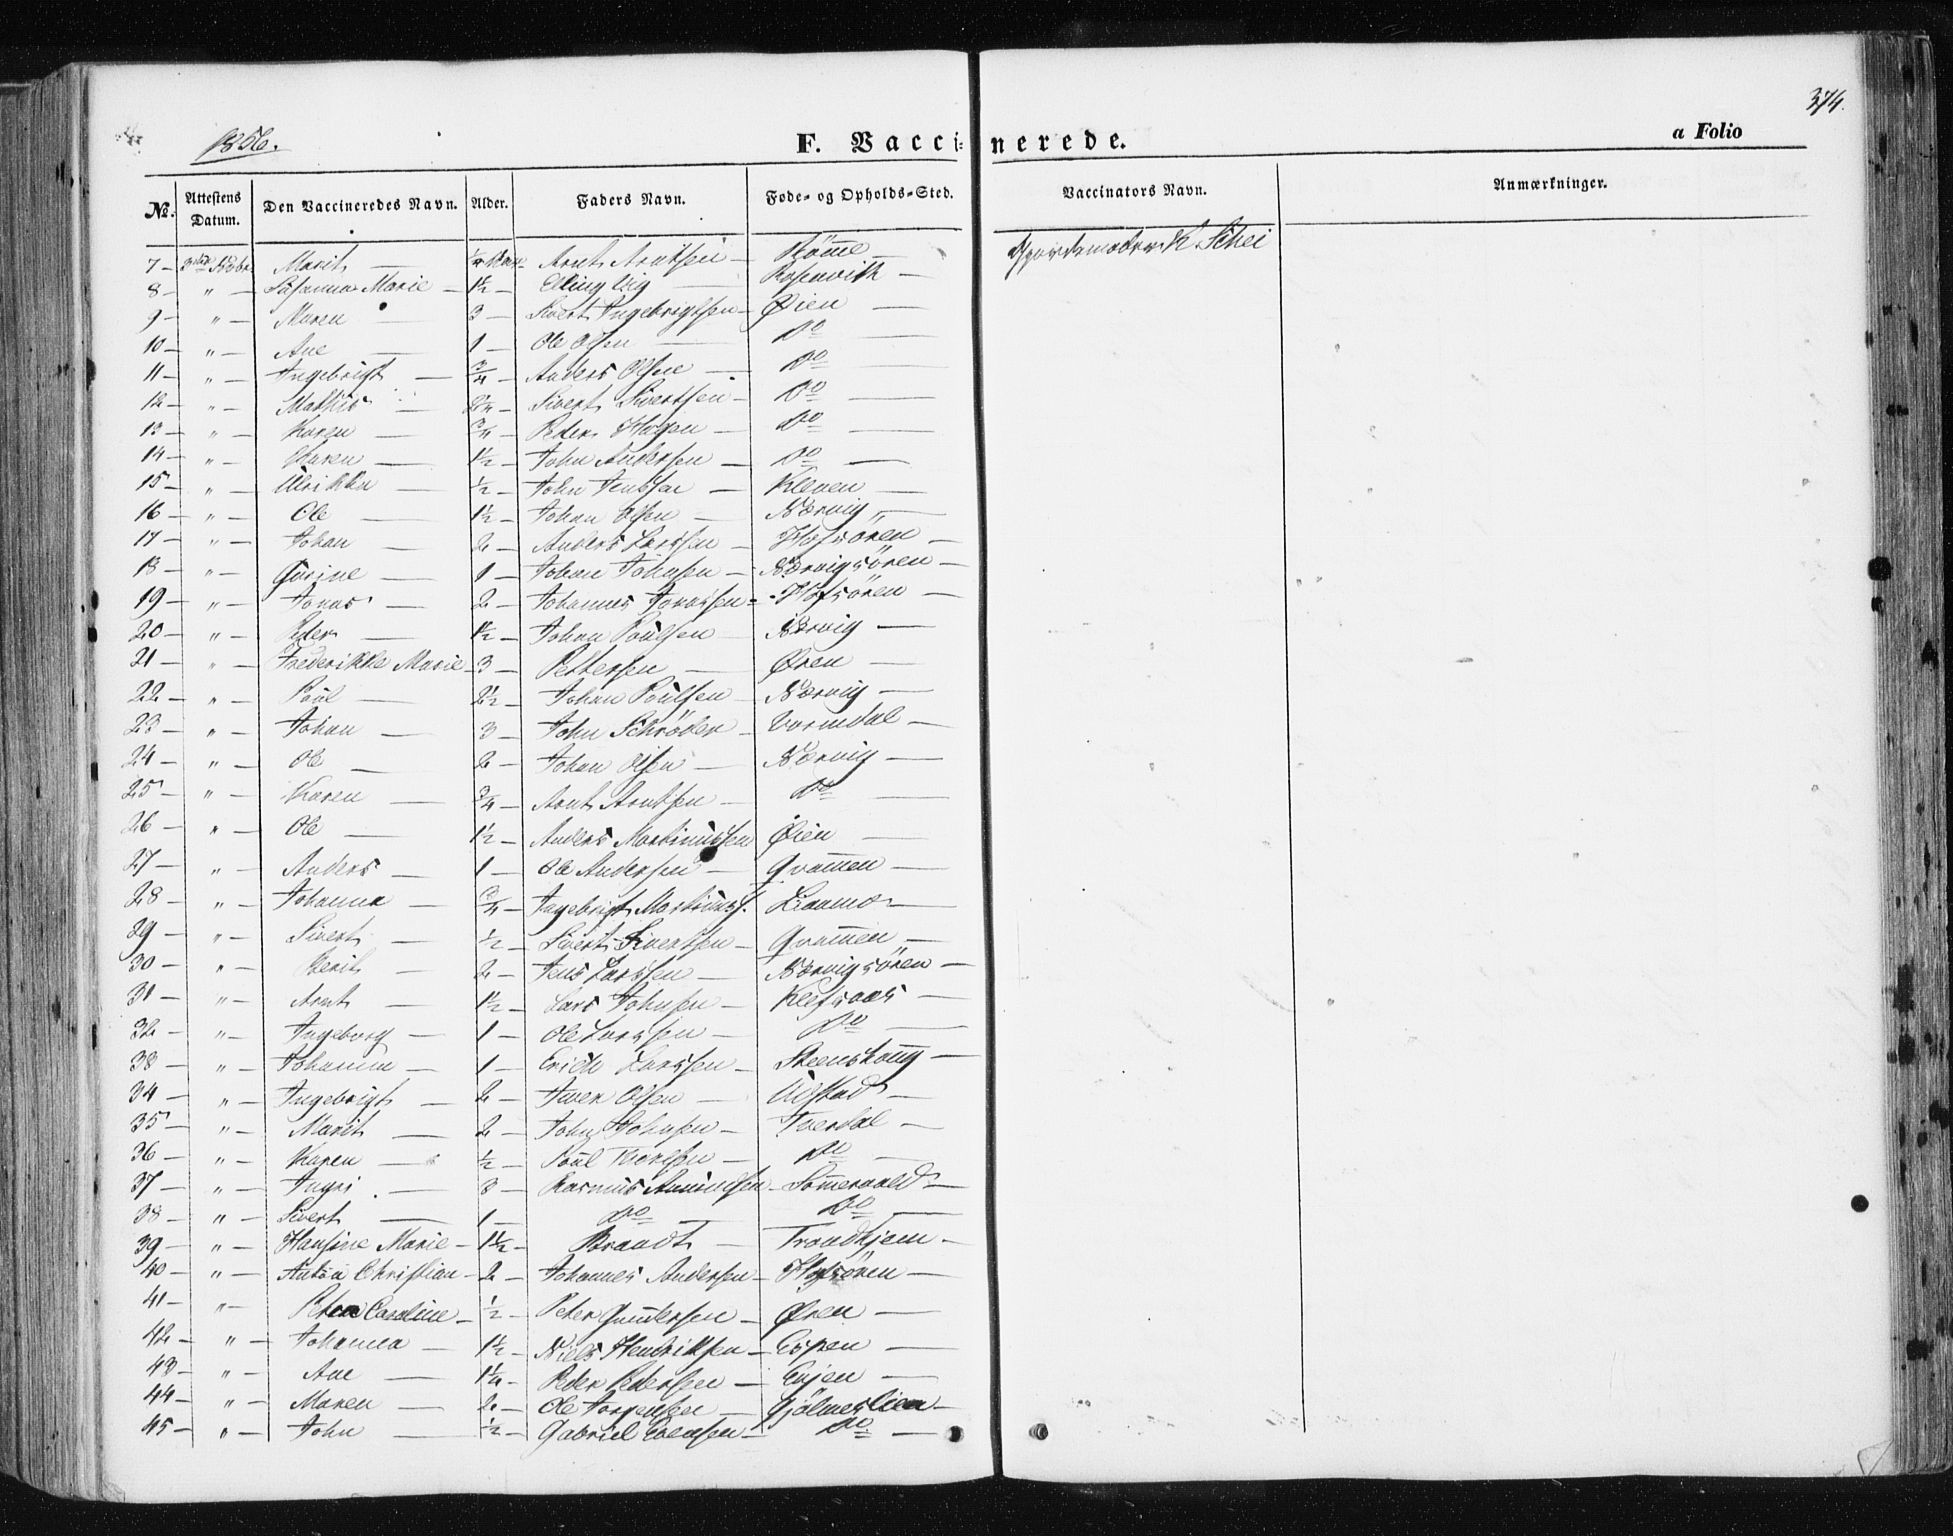 374.
1856.
F. Vaccinerede.
a Folio
No. Attestens Datum. Den Vaccineredes Navn. Alder. Faders Navn. Føde- og Opholds-Sted. Vaccinators Navn. Anmærkninger.
7 – Marit – Arnt Arntsen – Jordemoder K. Schei
8 – " – Susanna Marie – 1½ – Elling Wig – Rosenvik –
9 – " – Maren – 3 – Sivert Ingebrigtsen – Øien –
10 – " – Ane – 1 – Ole Olsen – Do –
11 – " – Ingebrigt – ¾ – Anders Olsen – Do –
12 – " – Mathis – Sivert Sivertsen – Do –
13 – " – Karen – ¾ – Peder Hagen – Do –
14 – " – Karen – 1½ – John Andersen – Do –
15 – " – Ulrikka – ½ – John Jenssen – Kleven –
16 – " – Ole – 1½ – Johan Olsen – Nærvig –
17 – " – Johan – 2 – Anders Larssen – Hofsören –
18 – " – Gurine – 1 – Johan Johnsen – Nærvigsören –
19 – " – Jonas – 2 – Johannes Jonassen – Hofsören –
20 – " – Peder – 1½ – Johan Poulsen – Nærvig –
21 – " – Frederikke Marie – 3 – Pettersen – Øren –
22 – " – Poul – 2½ – Johan Poulsen – Nærvig –
23 – " – Johan – 3 – John Schrøder – Vormdal –
24 – " – Ole – 2 – Johan Olsen – Nærvig –
25 – " – Karen – ¾ – Arnt Arntsen – Do –
26 – " – Ole – 1½ – Anders Martinussen Øien –
27 – " – Anders – 1 – Ole Andersen – Gvammen –
28 – " – Johanna – ¾ – Ingebrigt Martinuss. Lianmo –
29 – " – Sivert – ½ – Sivert Sivertsen – Gvammen –
30 – " – Berit – 2 – Jens Larssen – Nærvigsören –
31 – " – Arnt – 1½ – Lars Johnsen – Klefsaas –
32 – " – Ingeborg – 1 – Ole Larssen – Do –
33 – " – Johanna – 1 – Erich Larssen – Steenshoug –
34 – " – Ingebrigt – 2 – Iver Olsen – Udstad –
35 – " – Marit – 2 – John Johnsen – Tverdal –
36 – " – Karen – ½ – Poul – Do –
37 – " – Ingri – 3 – Rasmus Amundsen – Somervold –
38 – " – Sivert – 1 – Do – Do –
39 – " – Hansine Marie – 1½ – Brandt – Trondhjem –
40 – " – Anton Christian – 2 – Johannes Andersen – Hofsören –
41 – " – Caroline – ½ – Peter Gundersen – Øren –
42 – " – Johanna – 1½ – Niels Hendriksen – Espen –
43 – " – Ane – 1¼ – Peder Pedersen – Eujen –
44 – " – Maren – 2 – Ole Jørgensen – Gjölmeslien –
45 – " – John – ½ – Gabriel Evensen – Do –